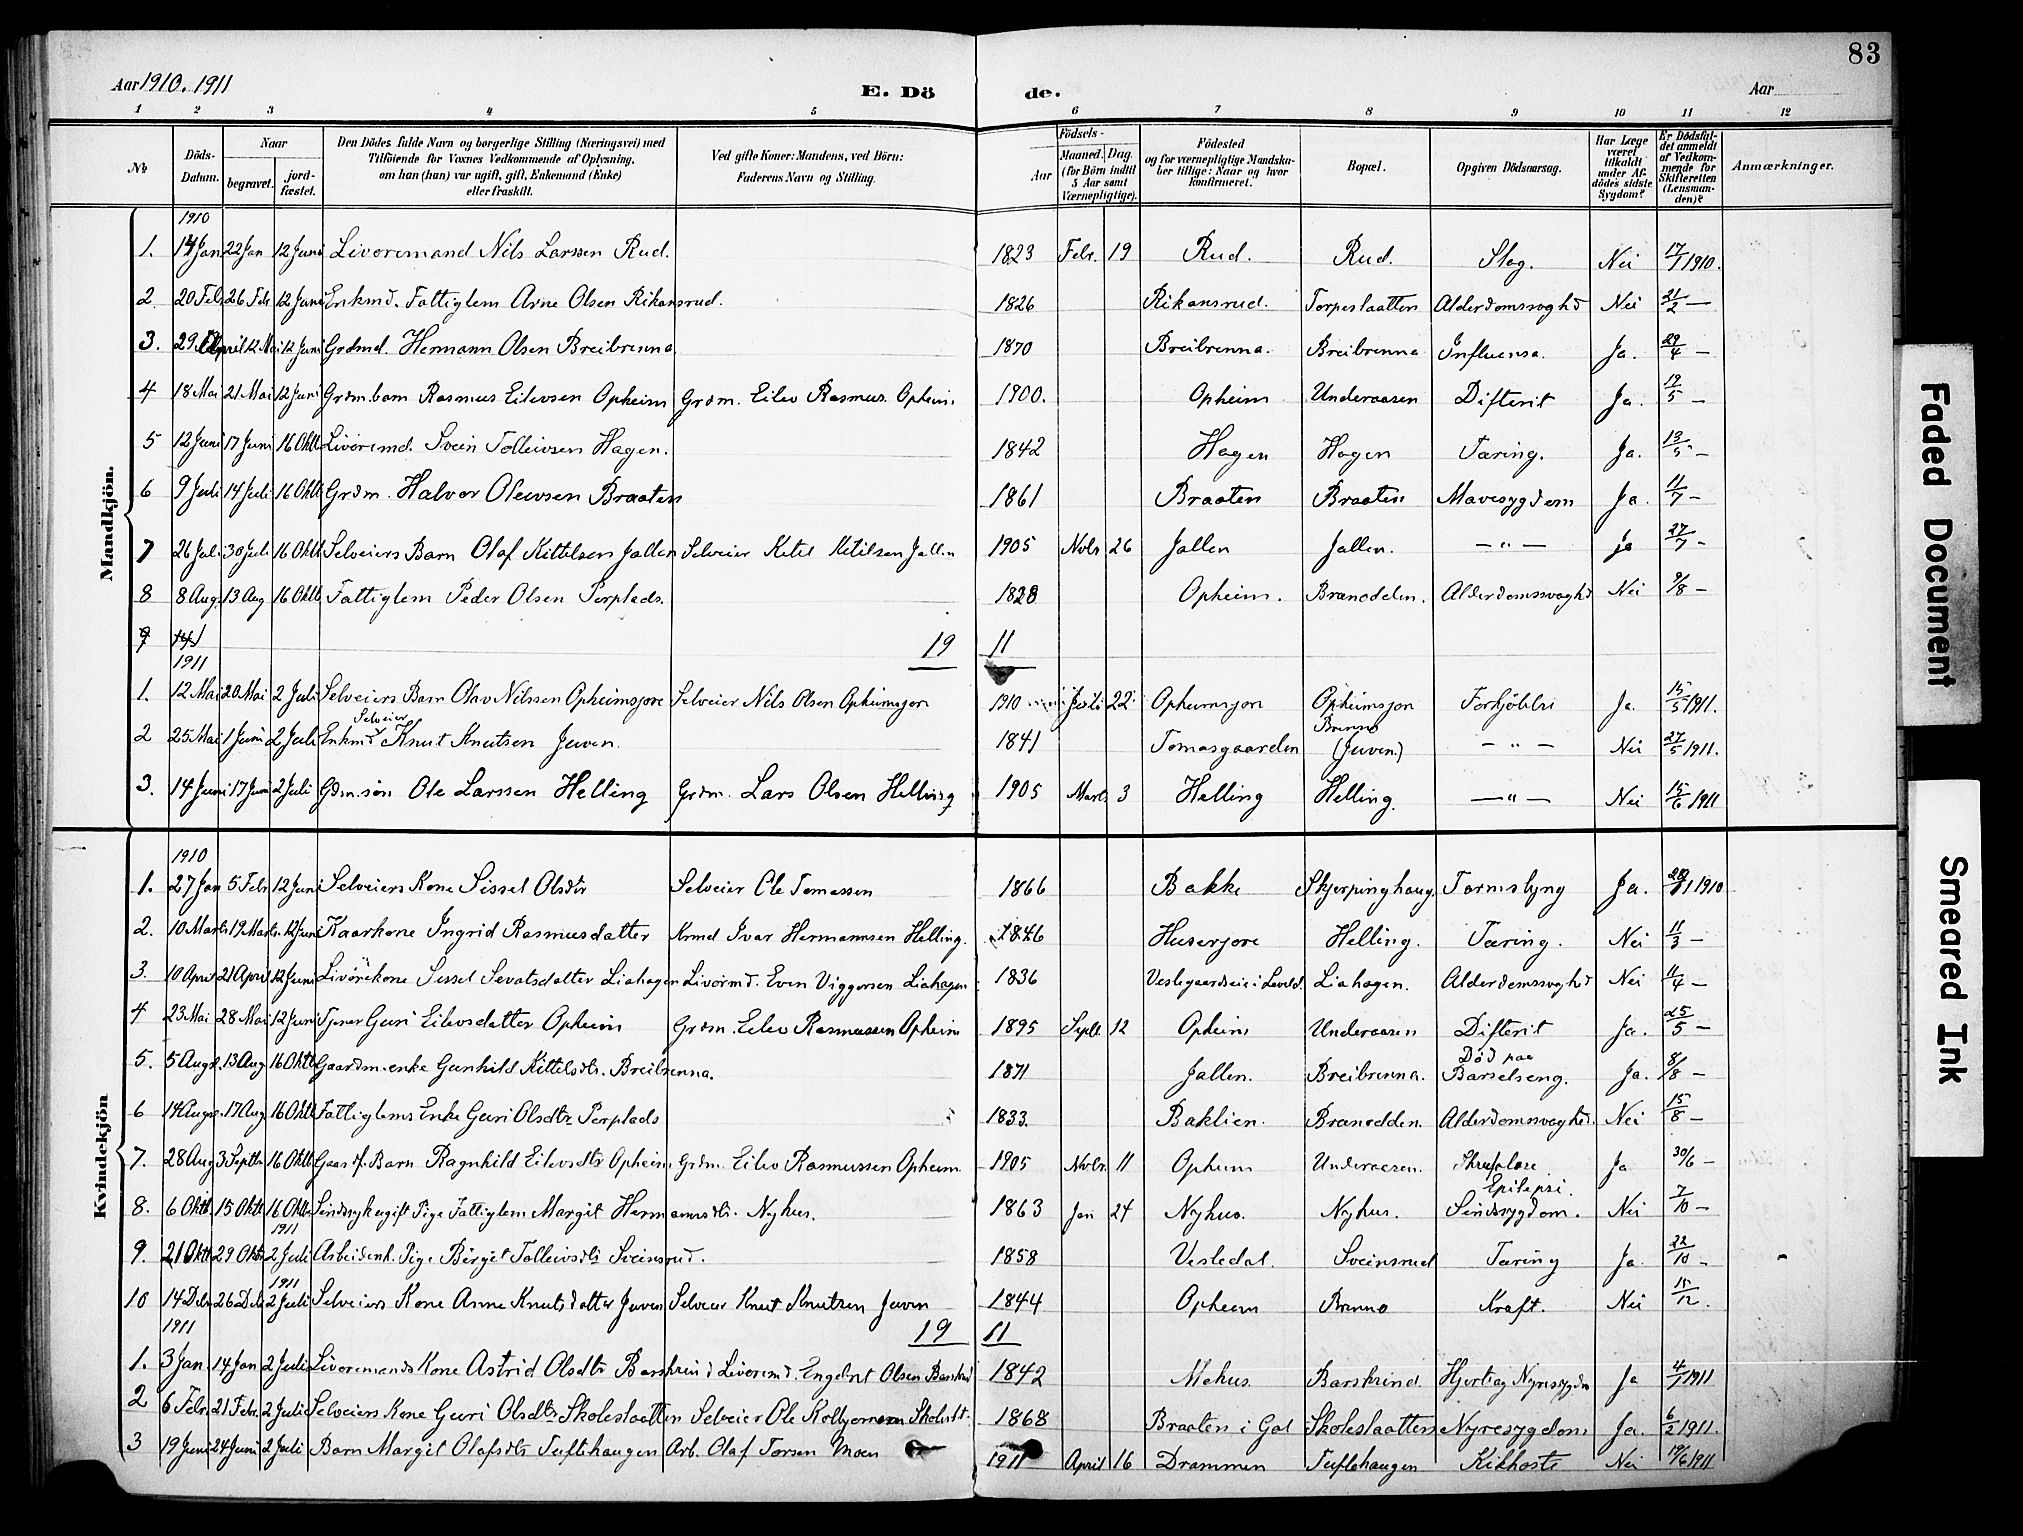 83
Aar 1910. 1911
E. Dö de.
Aar
1 2 3 4 5 6 7 8 9 10 11 12
No
Döds-Datum.
Naar
begravet.
jordfæstet.
Den Dödes fulde Navn og borgerlige Stilling (Næringsvei) med Tilföiende for Voxnes Vedkommende af Oplysning, om han (hun) var ugift, gift, Enkemand (Enke) eller fraskilt.
Ved gifte Koner: Mandens, ved Börn: Faderens Navn og Stilling.
Födsels-
Aar
Maaned. Dag.
(for Börn indtil 5 Aar samt Værnepligtige).
Födested og for værnepligtige Mandskaber tillige: Naar og hvor konfirmeret.
Bopæl.
Opgiven Dödsaarsag.
Har Læge været tilkaldt under Afdödes sidste Sygdom?
Er Dödsfaldet anmeldt af Vedkommende for Skifteretten (Lensmanden)?
Anmærkninger.
Mandkjön.
1910
1. 14 Jan 22 Jan 12 Juni Livöremand Nils Larssen Rud. 1823 Febr. 19 Rud. Rud. Slag. Nei 17/1 1910.
2 20 Febr 26 Febr 12 Juni Enkmd. Fattiglem Arne Olsen Rikansrud. 1826 Rikansrud. Torpeslaatten Alderdomssvaghd Nei 21/2 —
3. 29 April 12 Mai 12 Juni Grdmd. Hermann Olsen Breibrenna. 1870 Breibrenna. Breibrenna Influensa. Ja. 29/4 —
4 18 Mai 21 Mai 12 Juni Grdm.barn Rasmus Eilevsen Opheim Grdm. Eilev Rasmus. Opheim 1900. Opheim Underaasen Difterit Ja. 19/5 —
5 12 Juni 17 Juni 16 Oktb Livöremd. Svein Tolleivsen Hagen. 1842 Hagen Hagen Tæring. Ja. 13/ —
6 9 Juli 14 Juli 16 Oktb Grdm. Halvor Olevsen Braaten 1861 Braaten Braaten Mavesygdom Ja. 11/7 —
7 26 Juli 30 Juli 16 Oktb Selveiers Barn Olaf Kittelsen Jallen Selveier Ketil Ketilsen Jallen 1905 Novbr 26 Jallen Jallen. — " — ja 27/7 —
8 8 Aug. 13 Aug 16 Oktb Fattiglem Peder Olsen Perplads. 1828 Opheim. Branodden. Alderdomssvaghd Nei 9/8 —
9 19 11
1911
1. 12 Mai 20 Mai 2 Juli Selveiers Barn Olav Nilssen Opheimsjore Selveier Nils Olsen Opheimsjor 1910 Juli 22 Opheimsjor Opheimsjor Forkjölelse Ja. 15/5 1911.
2 25 Mai 1 Juni 2 Juli Enkmd Selveier Knut Knutsen Juven. 1841 Tomasgaarden Brenno (Juven.) — " — Nei 27/5 1911.
3. 14 Juni 17 Juni 2 Juli Gdm.sön Ole Larssen Helling Grdm. Lars Olsen Helling 1905 Marts 3 Helling Helling. — " — Nei 15/6 1911
Kvindekjön
1910
1. 27 Jan 5 Febr 12 Juni Selveiers Kone Sissel Olsdtr Selveier Ole Tomassen 1866 Bakke Skjerpinghaug. Tarmslyng Ja. 28/1 1910
2. 10 Marts 19 Marts. 12 Juni Kaarkone Ingrid Rasmusdatter Krmd Ivar Hermannsen Helling. 1846 Huserjore Helling. Tæring. Nei 11/3 —
3. 10 April 21 April 12 Juni Livörekone Sissel Sevatsdatter Liahagen Livörmd. Even Viggersen Liahagen 1836 Veslegaardseie i Leveld. Liahagen. Alderdomssvaghd Nei 11/4 —
4 23 Mai 28 Mai 12 Juni Tjener Guri Eilevsdatter Opheim Grdm. Eilev Rasmussen Opheim 1895 Septb. 12 Opheim Underaasen Difterit Ja. 25/5 —
5. 5 Augs. 13 Aug 16 Oktb Gaardm.enke Gunhild Kittelsdtr. Breibrenna. 1871 Jallen. Breibrenna. Död paa Barselseng. Ja. 8/8 —
6 14 Augs. 17 Aug 16 Oktb Fattiglems Enke Guri Olsdtr Perplads 1833. Baklien. Branodden. Alderdomssvaghd. Nei 15/8 —
7. 28 Aug 3 Septbr 16 Oktb Barn Ragnhild Eilevsdtr Opheim Grdm. Eilev Rasmussen Opheim. 1905 Novbr. 11 Opheim Underaasen. Ja 30/6 —
8. 6 Oktb 15 Oktb 16 Oktb Sindssyk ugift Pige Fattiglem Margit Hermansdtr. Nyhus. 1863 Jan 24 Nyhus. Nyhus. Epilepsi. Sindssygdom. Nei 7/10 —
1911
9. 21 Oktb 29 Oktb 2 Juli Arbeidenh. Pige Birgit Tolleivsdtr Sveinsrud. 1858 Vesledal. Sveinsrud Tæring Ja. 22/10 —
1911
10 14 Debr 26 Debr 2 Juli Selveiers Kone Anne Knutsdatter Juven Selveier Knut Knutsen Juven 1844 Opheim Brenno Kraft. Nei 15/12.
1911 19 11
1. 3 Jan. 14 Jan 2 Juli Livöremands Kone Astrid Olsdtr Barskrind Livöremd. Engebret Olsen Barskrind 1842 Mehus. Barskrind. Hjerte og Nyresygdm Ja 4/1 1911
2 6 Febr. 21 Febr. 2 Juli Selveiers Kone Guri Olsdtr Skoleslaatten Selveier Ole Kolbjørnsen Skolesl. 1868 Braaten i Gol Skoleslaatten Nyresygdom Ja. 6/2 1911.
3 19 Juni 24 Juni 2 Juli Barn Margit Olafsdtr Tuftehaugen Arb. Olaf Torsen Moen 1911 April 16 Drammen Tuftehaugen Kikhoste Nei 19/6 1911
Faded Document
Smeared Ink